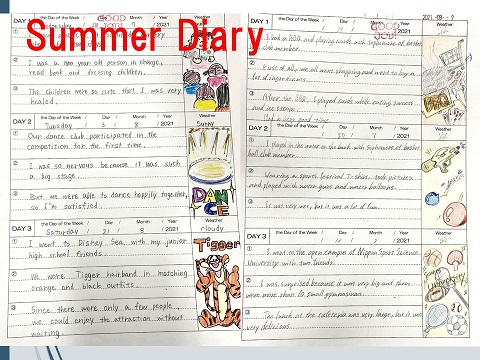 Summer Diary
the Day of the Week / Day / Month / Year
7 / 2021
GOOD JOB!
Weather
② I was a two year old person in charge,
read book and dressing children.
③ The children were so cute that I was very
healed.
DAY 2 the Day of the Week / Day / Month / Year Weather
Tuesday / 3 / 8 / 2021 Sunny
① Our dance club participated in the
competition for the first time.
② I was so nervous because it was such
a big stage.
③ But we were able to dance happily together,
so I'm satisfied.
DANCE
DAY 3 the Day of the Week / Day / Month / Year Weather
Saturday / 21 / 8 / 2021 cloudy
① I went to Disney Sea with my junior
high school friends.
② We wore Tigger hairband in matching
orange and black outfits.
③ Since there were only a few people,
we could enjoy the attraction without
waiting.
Tigger
DAY 1 the Day of the Week / Day / Month / Year Weather
/ 2021
GOOD JOB!
① I had a BBQ and playing cards with
club member.
② First of all, we all went shopping and went to buy a
lot of ingredients.
③ After the BBQ, I played cards while eating sweets
and ice cream.
Had a very good time.
DAY 2 the Day of the Week / Day / Month / Year Weather
/ 2021
① I played in the water at the park with
ball club member.
② Wearing a T-shirt, took pictures
and played with water guns and water balloons.
③ It was very wet, but it was a lot of fun.
DAY 3 the Day of the Week / Day / Month / Year Weather
/ 2021
① I went to the open campus of Nippon Sport Science
University with two friends.
② I was surprised because it was very big and there
were more than 10 small gymnasiums.
③ The lunch at the cafeteria was very large, but it was
very delicious.